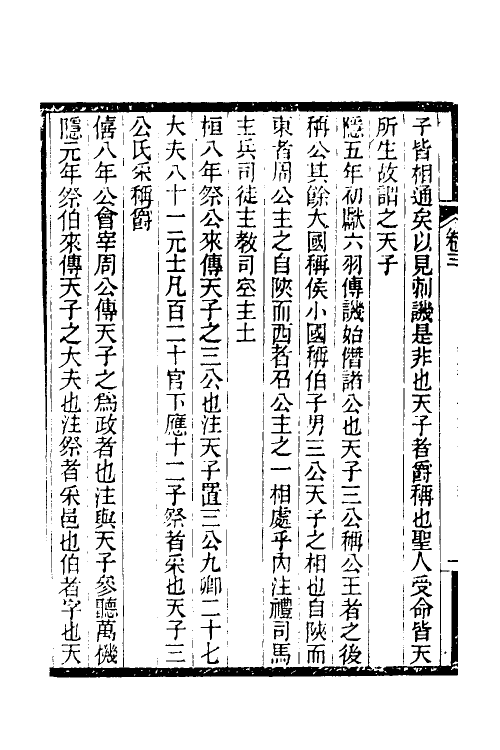 子皆相通矣以見刺譏是非也天子者爵稱也聖人受命皆天
所生故謂之天子
隱五年初獻六羽傳譏始僭諸公也天子三公稱公王者之後
稱公其餘大國稱侯小國稱伯子男三公天子之相也自陝而
東者周公主之自陝而西者召公主之一相處乎內注禮司馬
主兵司徒主教司空主土
桓八年祭公來傳天子之三公也注天子置三公九卿二十七
大夫八十一元士凡百二十官下應十二子祭者采也天子三
公氏采稱爵
僖八年公會宰周公傳天子之爲政者也注與天子參聽萬機
隱元年祭伯來傳天子之大夫也注祭者采邑也伯者字也天
卷三
一